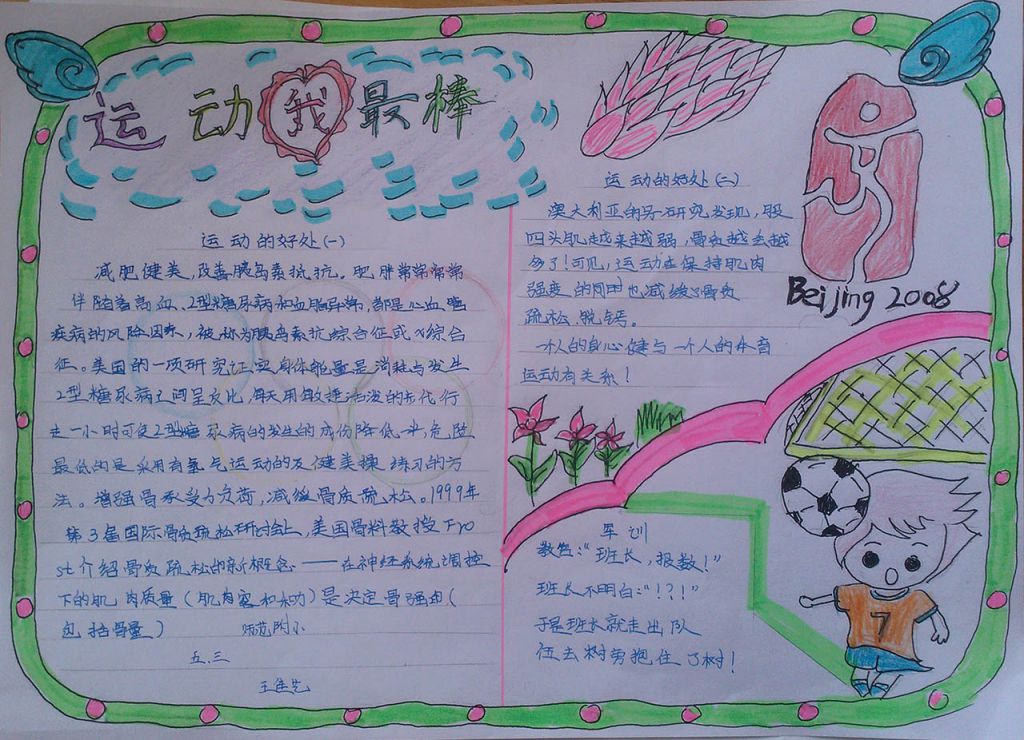 运动我最棒
运动的好处(一)
减肥健美,改善胰岛素抵抗。肥胖常常常常
伴随着高血、2型糖尿病和血脂异常,都是心血管
疾病的风险因素,被称为胰岛素抗综合征或x综合
征。美国的一项研究证实身体能量是消耗与发生
2型糖尿病之间呈反比,每天用敏捷活泼的步代行
走一小时可使2型糖尿病的发生的成份降低半危险
最低的是采用有氧气运动的及健美操练习的方
法。增强骨承受力负荷,减缓骨质疏松。1999年
第3届国际骨质疏松研讨会上,美国骨科教授Fro
st介绍骨质疏松的新概念——在神经系统调控
下的肌肉质量(肌肉容和动力)是决定骨强的(
包括骨量) 师范附小
五.三
王佳艺
运动的好处(二)
澳大利亚的另一研究发现,股
四头肌越来越弱,骨质越去越
多了!可见,运动在保持肌肉
强度的同时也减缓了骨质
疏松.脱钙。
一个人的身心健与一个人的体育
运动有关系!
Beijing 2008
军训
教官:“班长,报数!”
班长不明白:“!?!”
于是班长就走出队
伍去树旁抱住了树!
7